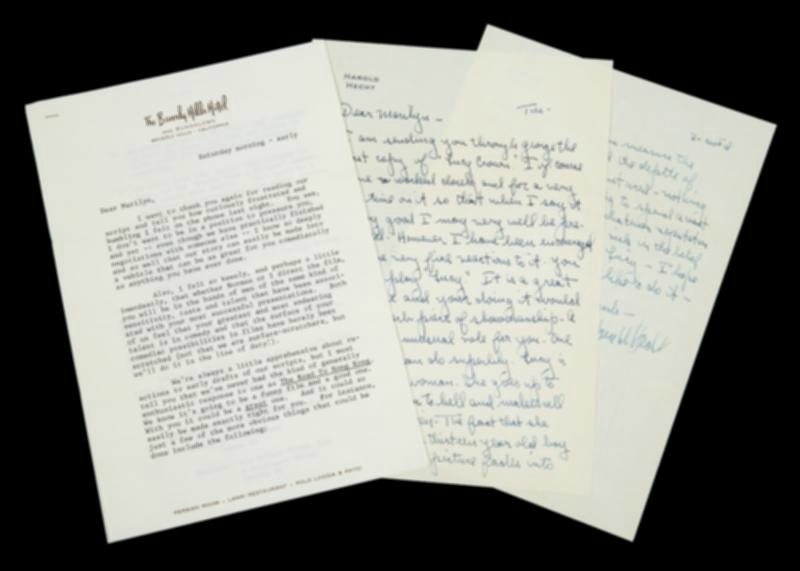 The Beverly Hills Hotel
AND BUNGALOWS
BEVERLY HILLS · CALIFORNIA
Saturday morning - early
Dear Marilyn,
I want to thank you again for reading our
script and tell you how furiously frustrated and
bumbling I felt on the phone last night. You see,
I don't want to be in a position to pressure you,
and yet -- even though we have practically finished
negotiations with someone else -- I know so deeply
and so well that our story can easily be made into
a vehicle that can be as great for you comedically
as anything you have ever done.
Also, I felt so keenly, and perhaps a little
immodestly, that whether Norman or I direct the film,
you will be in the hands of men of the same kind of
sensitivity, taste and talent that have been associ-
ated with your most successful presentations. Both
of us feel that your greatest and most endearing
talent is in comedy and that the surface of your
comedic possibilities in films have barely been
scratched (not that we are surface-scratchers, but
we'll do it in the line of duty!).
We're always a little apprehensive about re-
actions to early drafts of our scripts, but I must
tell you that we've never had the kind of generally
enthusiastic response to one as The Road To Hong Kong.
We know it's going to be a funny film and a good one.
With you it could be a great one. And it could so
easily be made exactly right for you. For instance,
just a few of the more obvious things that could be
done include the following:
PERSIAN ROOM · LANAI RESTAURANT · POLO LOGGIA & PATIO
HAROLD
HECHT
Tues-
Dear Marilyn -
I am sending you through george the
copy of "Lucy Crown" I of course
so worked closely and for a very
time on it so that when I say it
good I may very well be pre-
However I have been encouraged
very fine reactions to it. you
play "Lucy" It is a great
and your doing it would
piece of showmanship. A
unusual role for you. One
can do superbly. Lucy is
woman. She goes up to
to hell and
The fact that she
thirteen year old boy
picture into
2-
measure the
the depths of
nothing
to spend a
reputation
in the belief
Lucy - I hope
like to do it -